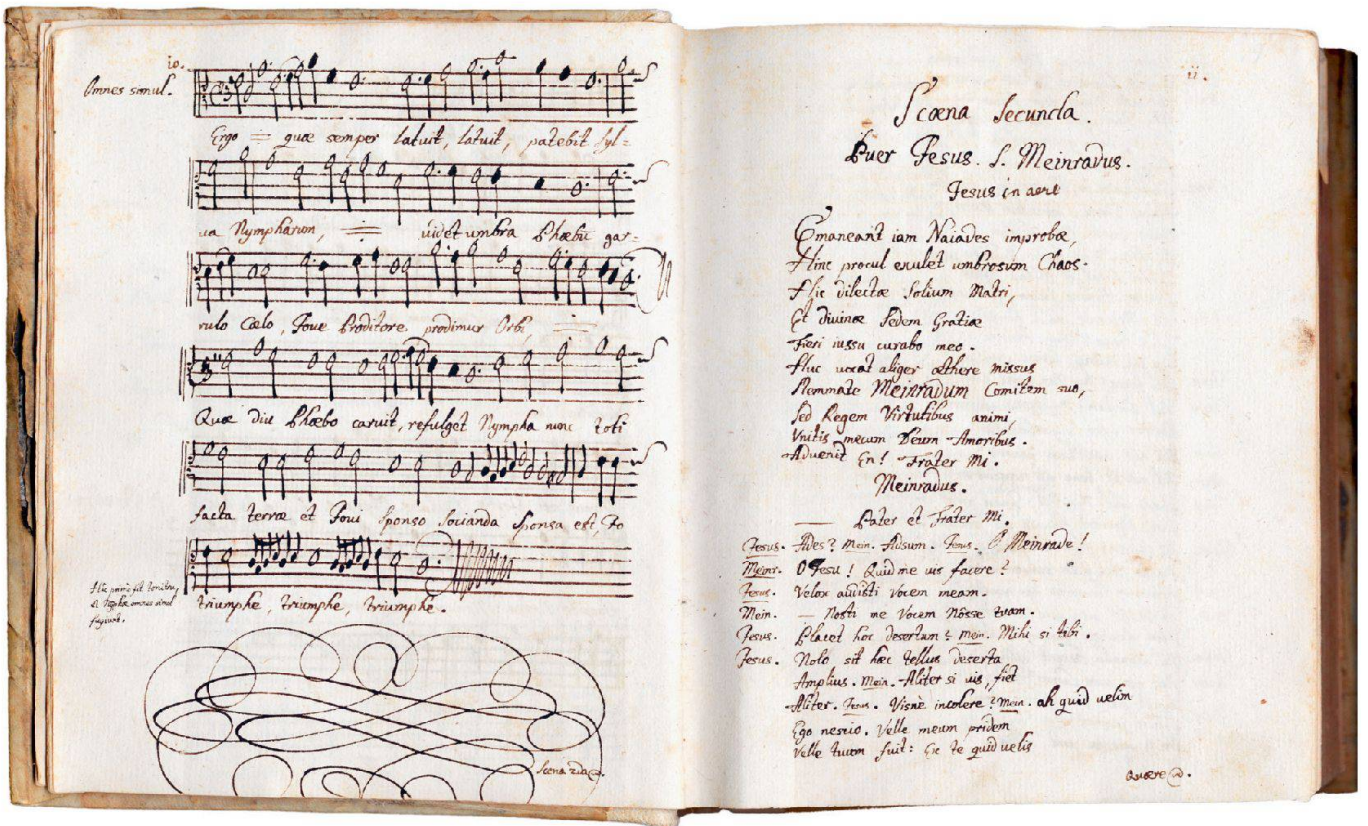 10.
Omnes simul.
Ergo = quæ semper latuit, latuit, patebit syl=
va Nympharum, = videt umbra Phæbũ gar=
rulo Cælo, Jove Proditore prodimur Orbi =
Quæ diu Phæbo caruit, refulget Nympha nunc toti
facta terræ et Jovi sponso socianda sponsa est, Jo
triumphe, triumphe, triumphe.
Hic fit
omnes simul
fugiunt.
Scena 2da
11.
Scæna secunda.
Puer Jesus. S. Meinradus.
Jesus in aere
Emaneant iam Naiades improbæ,
Hinc procul exulet umbrosum Chaos.
Hic dilectæ solium Matri,
Et divinæ sedem Gratiæ
Fieri iussu curabo meo.
Huc vocat aliger æthere missus
Stemmate Meinradum Comitem suo,
Sed Regem Virtutibus animi,
Unitis mecum Deum Amoribus.
Advenit En! Frater Mi.
Meinradus.
— Pater et Frater Mi.
Jesus. Ades? Mein. Adsum. Jesus. O Meinrade!
Meinr. O Jesu! Quid me vis facere?
Jesus. Velox audisti vocem meam.
Mein. — Nosti me Vocem Nôsse tuam.
Jesus. Placet hoc desertum? Mein. Mihi si tibi.
Jesus. Nolo sit hæc tellus deserta
Amplius. Mein. Aliter si vis, fiet
Aliter. Jesus. Visnè incolere? Mein. ah quid velim
Ego nescio. Velle meum pridem
Velle tuum fuit: Ex te quid velis
Quære